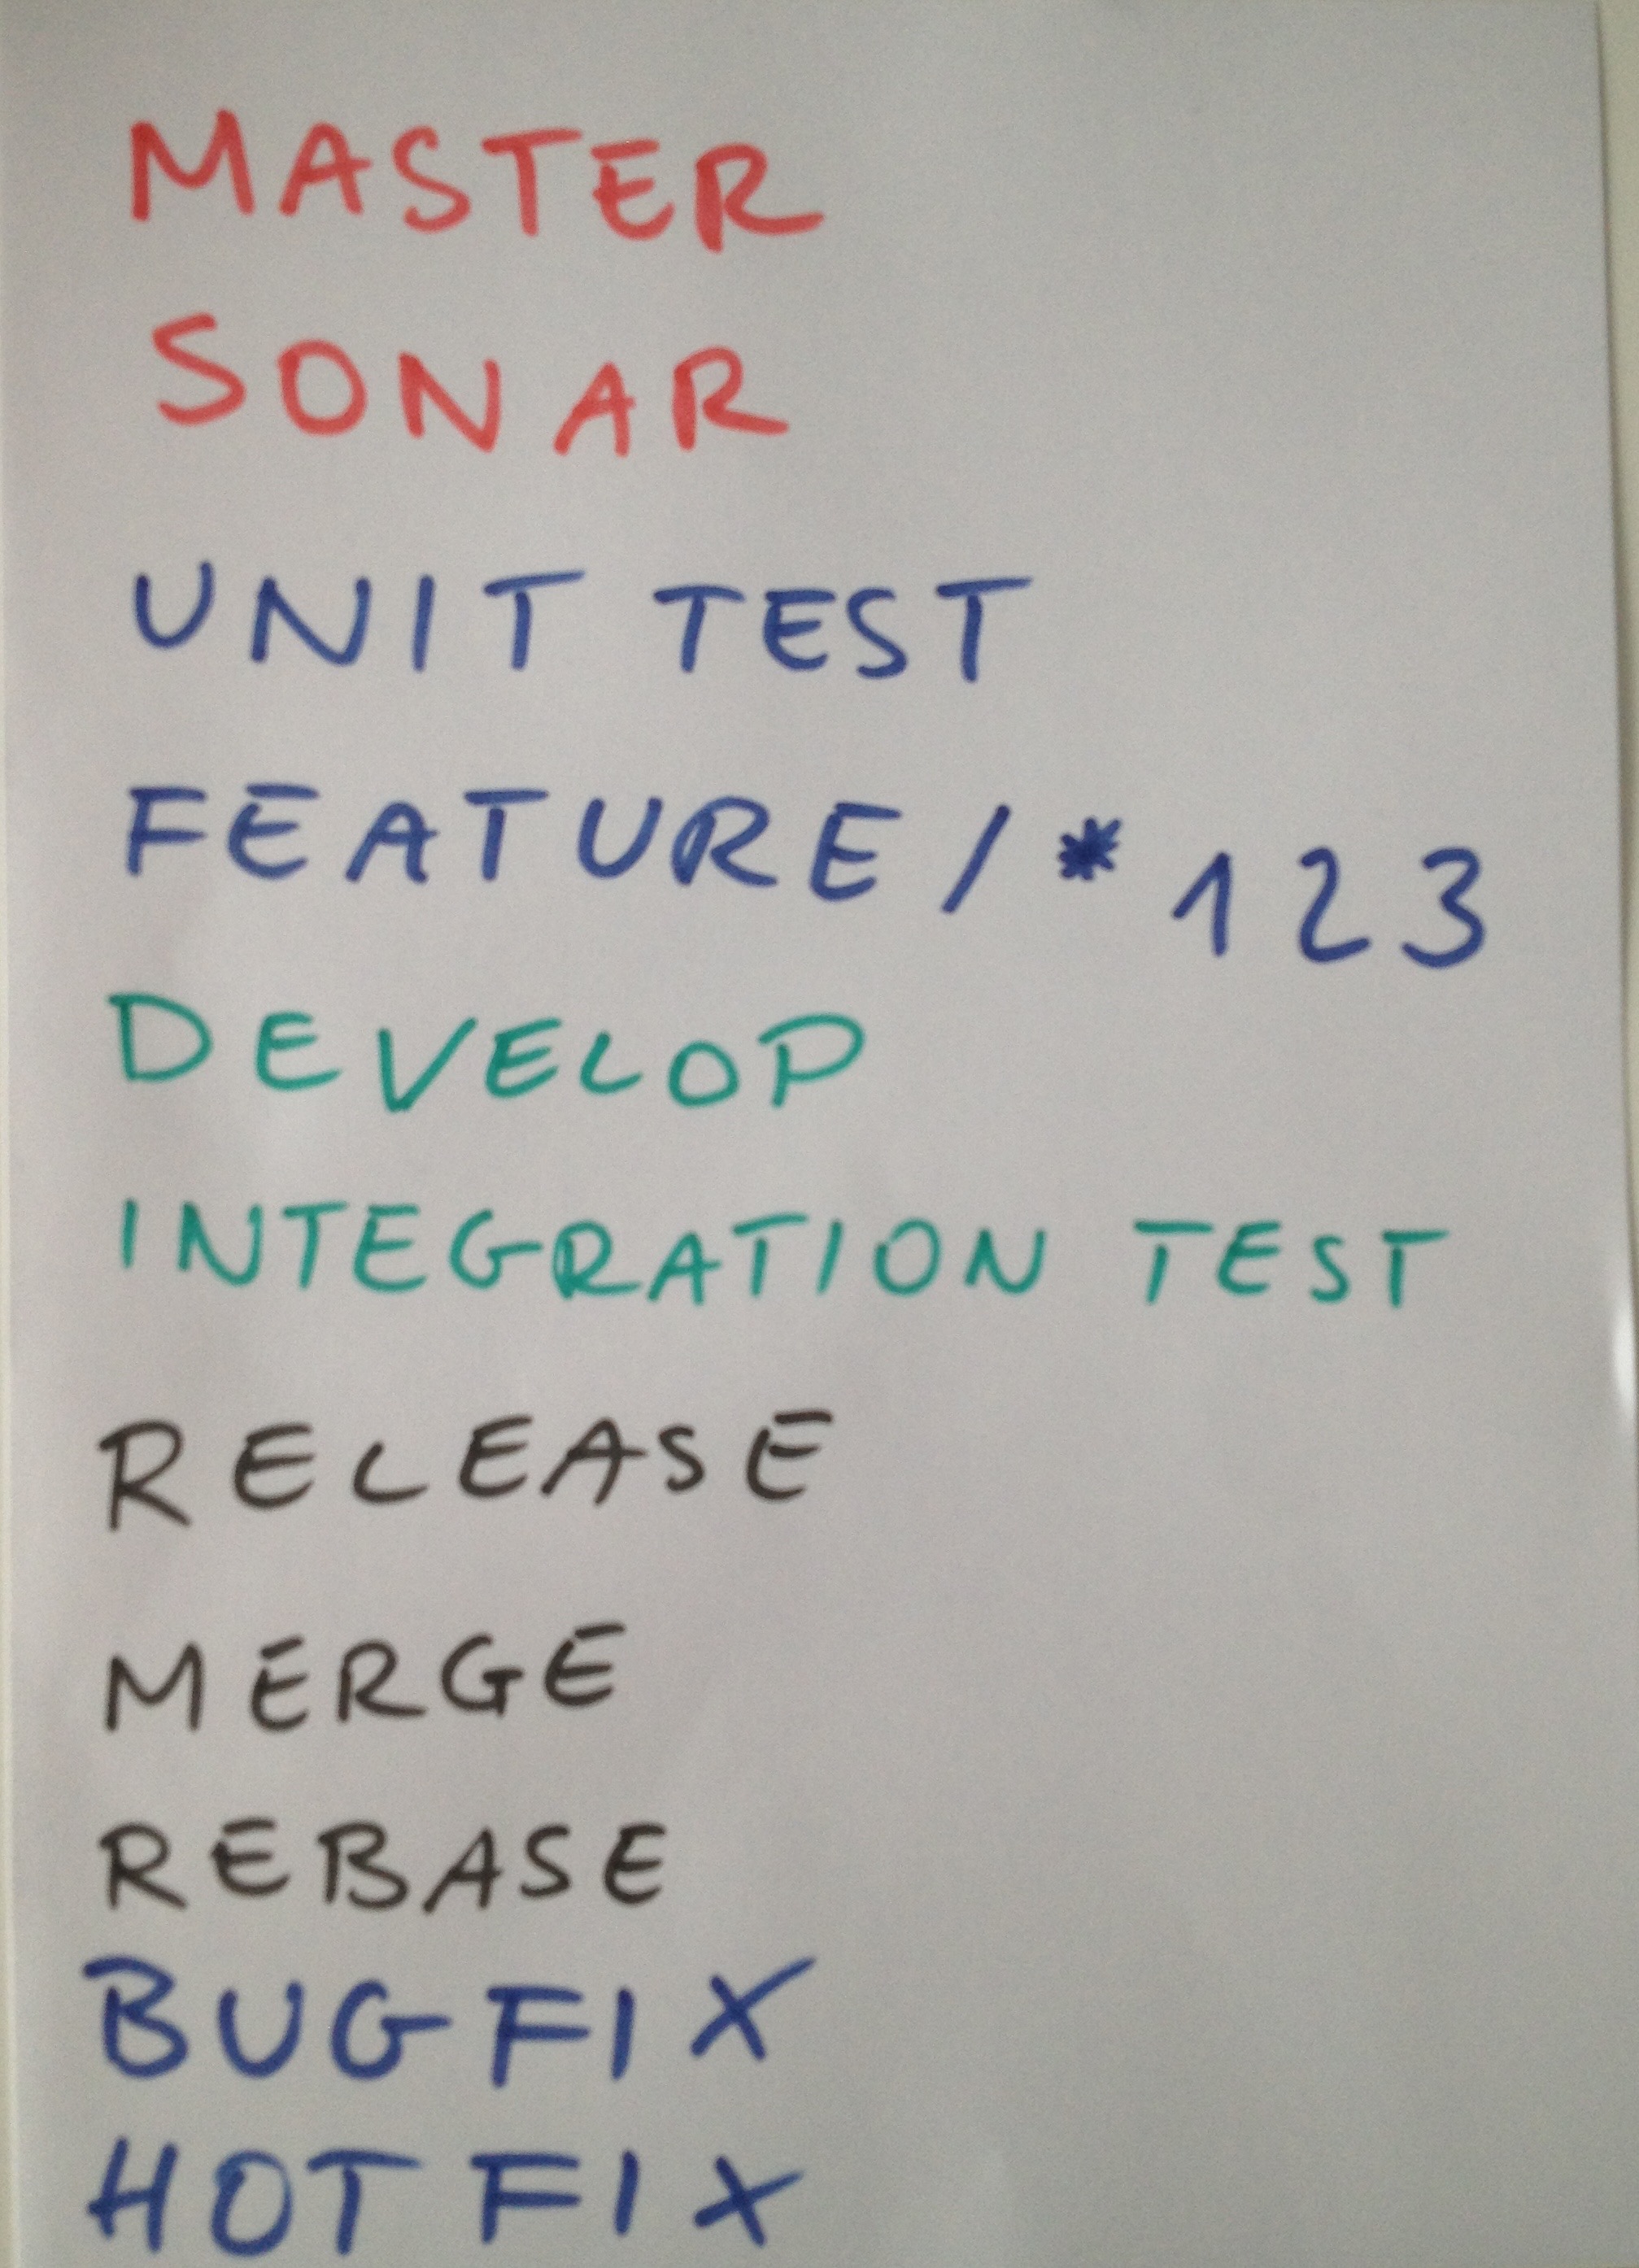 MASTER
SONAR
UNIT TEST
FEATURE / * 123
DEVELOP
INTEGRATION TEST
RELEASE
MERGE
REBASE
BUGFIX
HOTFIX